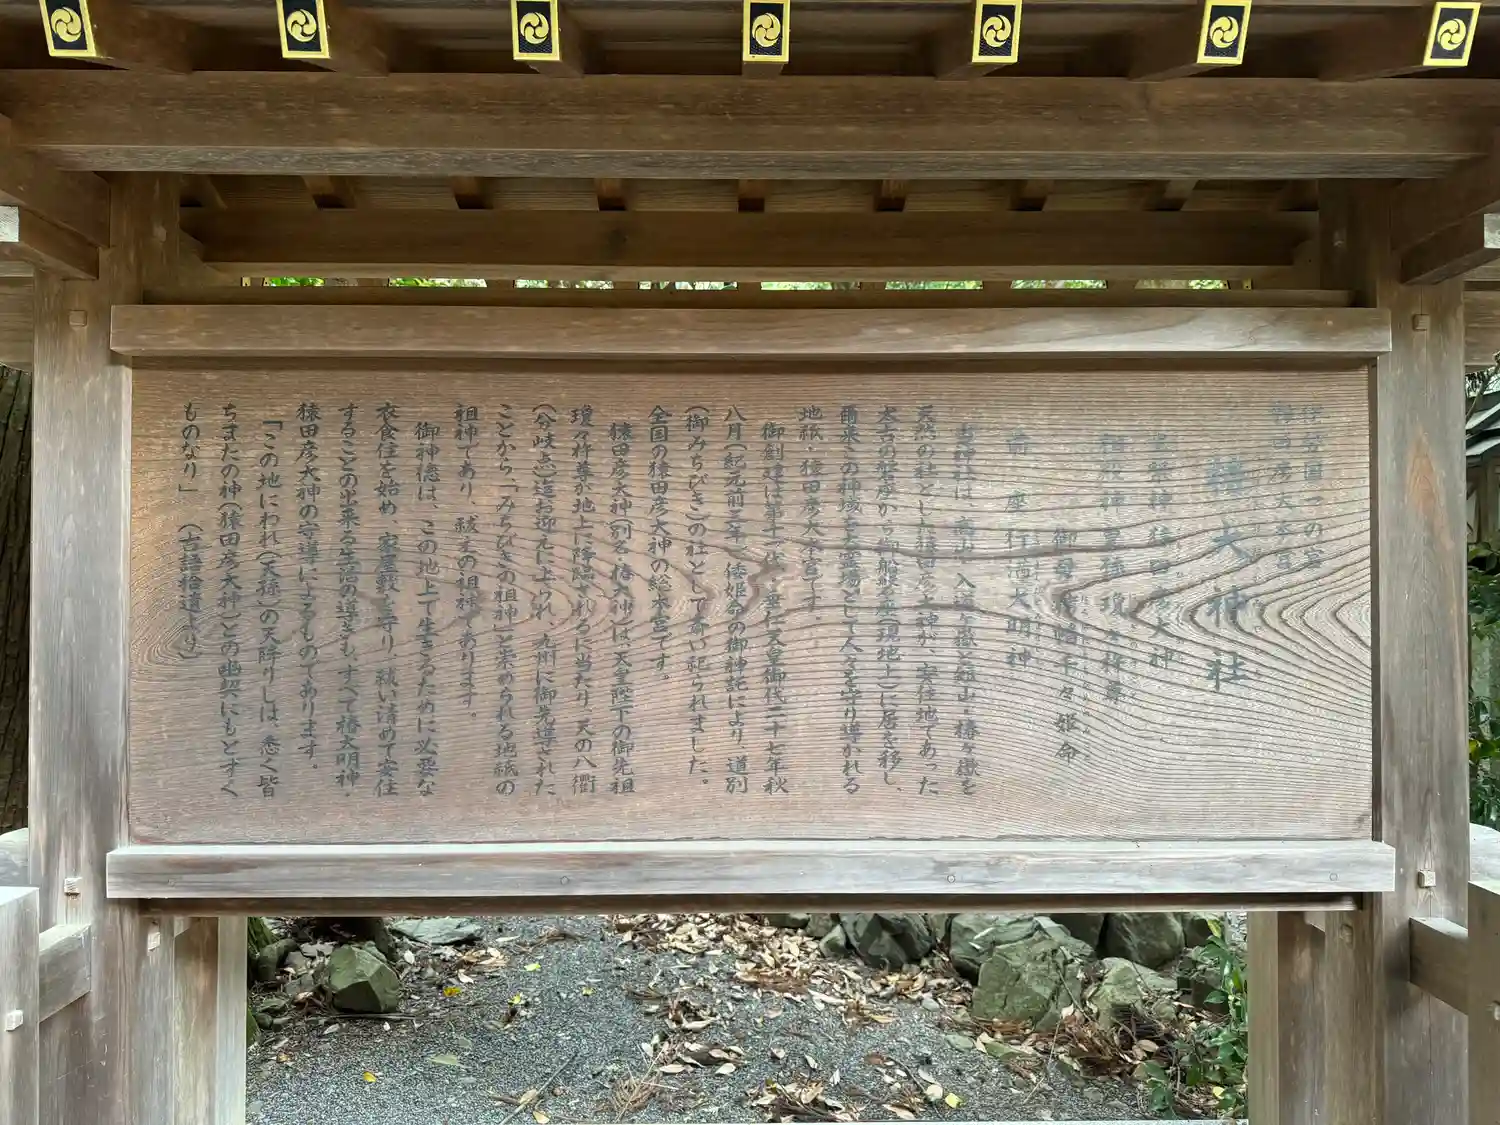 伊勢国一の宮
猿田彦大本宮
椿大神社
主祭神 猿田彦大神
相殿神 皇孫瓊々杵尊
御母 栲幡千々姫命
前座 行満大明神
当神社は、高山・入道ヶ嶽、短山・椿ヶ嶽を
天然の社とした猿田彦大神が、安住地であった
太古の磐座から御船磐座(現地上)に居を移し、
爾来この神域を主霊場として人々を守り導かれる
地祇・猿田彦大本宮です。
御創建は第十一代・垂仁天皇御代二十七年秋
八月(紀元前三年)、倭姫命の御神託により、道別
(御みちびき)の社として斎い祀られました。
全国の猿田彦大神の総本宮です。
猿田彦大神(別名・椿大神)は、天皇陛下の御先祖
瓊々杵尊が地上に降臨されるに当たり、天の八衢
(分岐点)迄お迎えに上られ、九州に御先導された
ことから、「みちびきの祖神」と崇められる地祇の
祖神であり、祓いの祖神であります。
御神徳は、この地上で生きるために必要な
衣食住を始め、家屋敷を守り、祓い清めて安住
することの出来る生活の導きも、すべて椿大明神・
猿田彦大神の守導によるものであります。
「この地にわれ(天孫)の天降りしは、悉く皆
ちまたの神(猿田彦大神)との幽契にもとずく
ものなり」 (古語拾遺より)